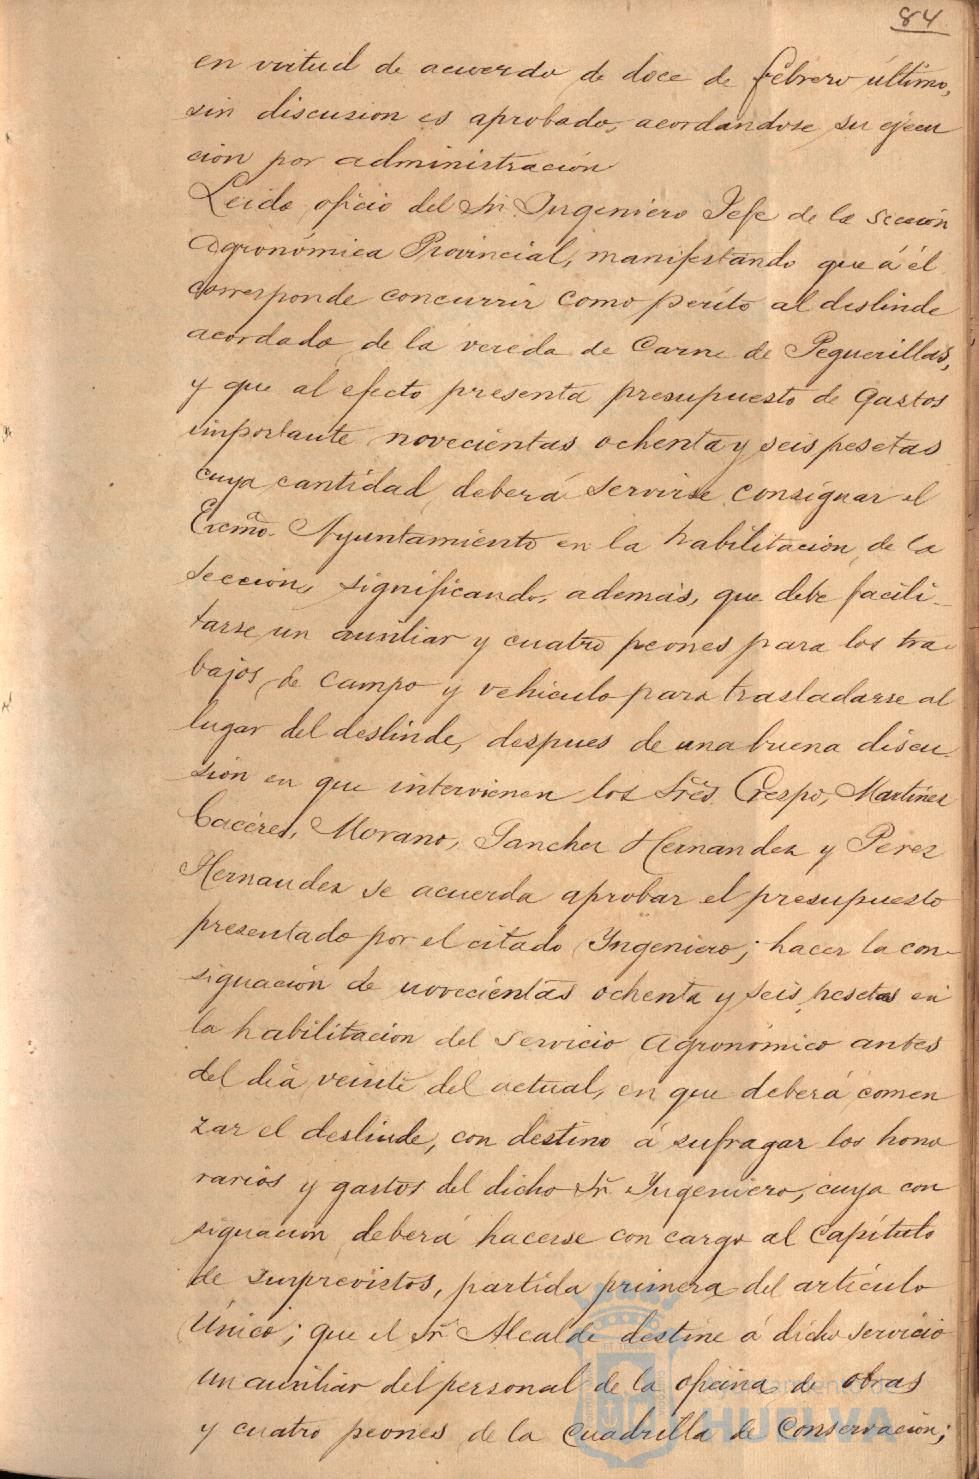 84
en virtud de acuerdo de doce de febrero último,
sin discusion es aprobado, acordandose su ejecu
ción por administración
Leido oficio del Sr. Ingeniero Jefe de la Sección
Agronómica Provincial, manifestando que á él
corresponde concurrir como perito al deslinde
acordado de la vereda de Carne de Peguerillas,
y que al efecto presenta presupuesto de gastos
importante novecientas ochenta y seis pesetas
cuya cantidad deberá servirse consignar el
Excmo. Ayuntamiento en la habilitación de la
Sección, significando, además, que debe facili-
tarse un auxiliar y cuatro peones para los tra-
bajos de campo y vehiculo para trasladarse al
lugar del deslinde, despues de una buena discu-
sión en que intervienen los Sres. Crespo, Martínez
Caceres, Morano, Sanchez Hernandez y Perez
Hernandez se acuerda aprobar el presupuesto
presentado por el citado Ingeniero; hacer la con-
signación de novecientas ochenta y seis pesetas en
la habilitacion del Servicio Agronómico antes
del día veinte del actual, en que deberá comen
zar el deslinde, con destino á sufragar los hono
rarios y gastos del dicho Sr. Ingeniero, cuya con
signación deberá hacerse con cargo al Capítulo
de Imprevistos, partida primera del artículo
Único; que el Sr. Alcalde destine á dicho servicio
un auxiliar del personal de la oficina de obras
y cuatro peones de la Cuadrilla de Conservación;
Ayuntamiento de
HUELVA